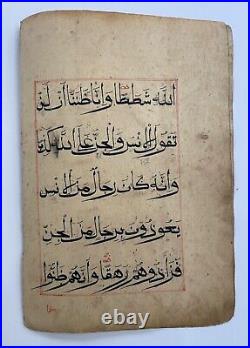 الله شَطَطًا وَاَنَّا ظَنَنَّا اَنْ لَنْ
تَقُولَ الْاِنْسُ وَالْجِنُّ عَلَى اللهِ كَذِبًا
وَاَنَّهُ كَانَ رِجَالٌ مِنَ الْاِنْسِ
يَعُوذُونَ بِرِجَالٍ مِنَ الْجِنِّ
فَزَادُوهُمْ رَهَقًا وَاَنَّهُمْ ظَنُّوا